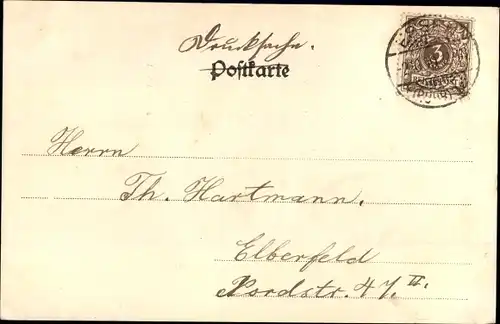 Drucksache.
Postkarte
3
Herrn
Th. Hartmann.
Elberfeld
Nordstr. 47. II.